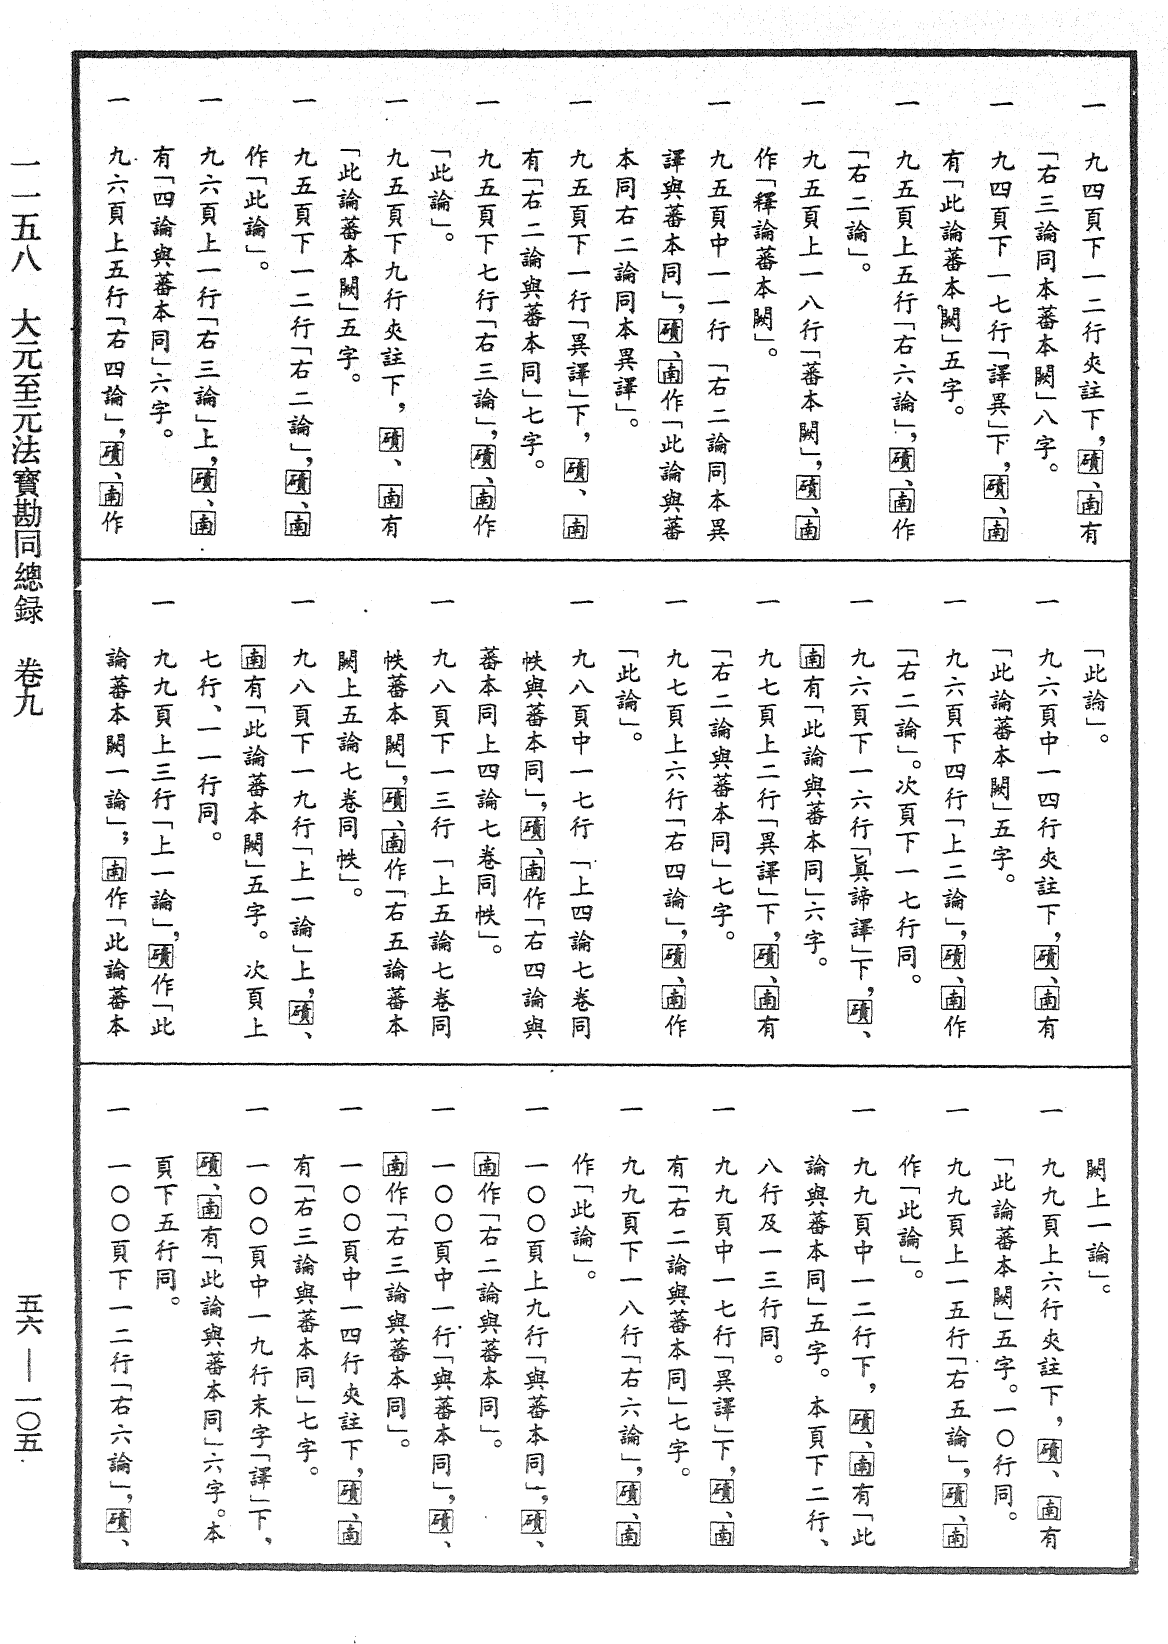 一　九四頁下一二行夾註下，磧、南有
「右三論同本蕃本闕」八字。
一　九四頁下一七行「譯異」下，磧、南
有「此論蕃本闕」五字。
一　九五頁上五行「右六論」，磧、南作
「右二論」。
一　九五頁上一八行「蕃本闕」，磧、南
作「釋論蕃本闕」。
一　九五頁中一一行「右二論同本異
譯與蕃本同」，磧、南作「此論與蕃
本同右二論同本異譯」。
一　九五頁下一行「異譯」下，磧、南
有「右二論與蕃本同」七字。
一　九五頁下七行「右三論」，磧、南作
「此論」。
一　九五頁下九行夾註下，磧、南有
「此論蕃本闕」五字。
一　九五頁下一二行「右二論」，磧、南
作「此論」。
一　九六頁上一行「右三論」上，磧、南
有「四論與蕃本同」六字。
一　九六頁上五行「右四論」，磧、南作
「此論」。
一　九六頁中一四行夾註下，磧、南有
「此論蕃本闕」五字。
一　九六頁下四行「上二論」，磧、南作
「右二論」。次頁下一七行同。
一　九六頁下一六行「眞諦譯」下，磧、
南有「此論與蕃本同」六字。
一　九七頁上二行「異譯」下，磧、南有
「右二論與蕃本同」七字。
一　九七頁上六行「右四論」，磧、南作
「此論」。
一　九八頁中一七行「上四論七卷同
帙與蕃本同」，磧、南作「右四論與
蕃本同上四論七卷同帙」。
一　九八頁下一三行「上五論七卷同
帙蕃本闕」，磧、南作「右五論蕃本
闕上五論七卷同帙」。
一　九八頁下一九行「上一論」上，磧、
南有「此論蕃本闕」五字。次頁上
七行、一一行同。
一　九九頁上三行「上一論」，磧作「此
論蕃本闕一論」；南作「此論蕃本
闕上一論」。
一　九九頁上六行夾註下，磧、南有
「此論蕃本闕」五字。一〇行同。
一　九九頁上一五行「右五論」，磧、南
作「此論」。
一　九九頁中一二行下，磧、南有「此
論與蕃本同」五字。本頁下二行、
八行及一三行同。
一　九九頁中一七行「異譯」下，磧、南
有「右二論與蕃本同」七字。
一　九九頁下一八行「右六論」，磧、南
作「此論」。
一　一〇〇頁上九行「與蕃本同」，磧、
南作「右二論與蕃本同」。
一　一〇〇頁中一行「與蕃本同」，磧、
南作「右三論與蕃本同」。
一　一〇〇頁中一四行夾註下，磧、南
有「右三論與蕃本同」七字。
一　一〇〇頁中一九行末字「譯」下，
磧、南有「此論與蕃本同」六字。本
頁下五行同。
一　一〇〇頁下一二行「右六論」，磧、
一一五八　大元至元法寶勘同總録　卷九
五六—一〇五